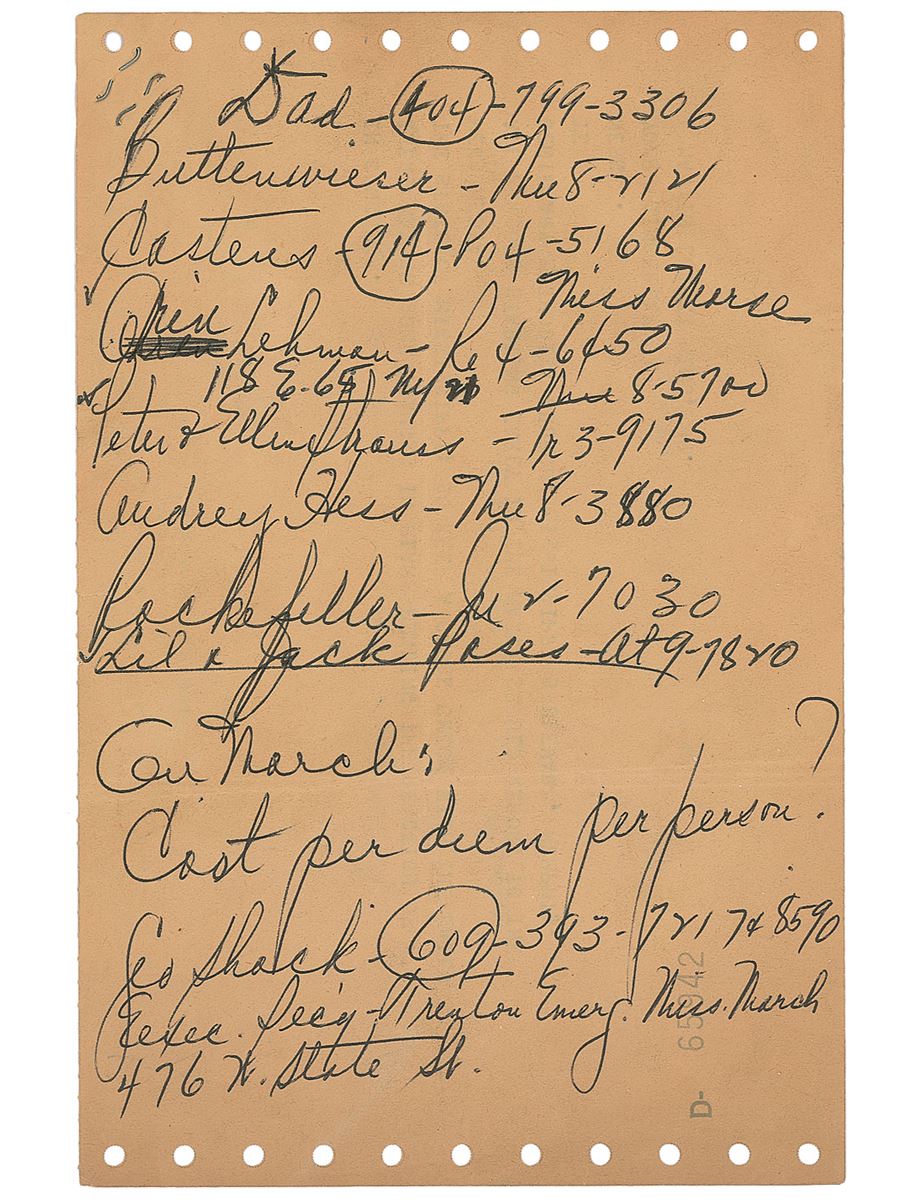 Dad - 404 - 799-3306
Buttenwieser - Mu 8-2121
Castens - 914 - Po4-5168
Miss Morse
Orin Lehman - Re 4-6450
118 E. 65 NY 21 Mu 8-5700
Peter & Ellen Strauss - Tr 3-9175
Audrey Hess - Mu 8-3880
Rockefeller - Ju 2-7030
Lil & Jack Poses - At 9-7820
On March:
Cost per diem per person?
Geo Shack - 609 - 393-7217 + 8590
exec. Sec'y - Trenton Emerg. Miss. March
476 W. State St.
D- 65942